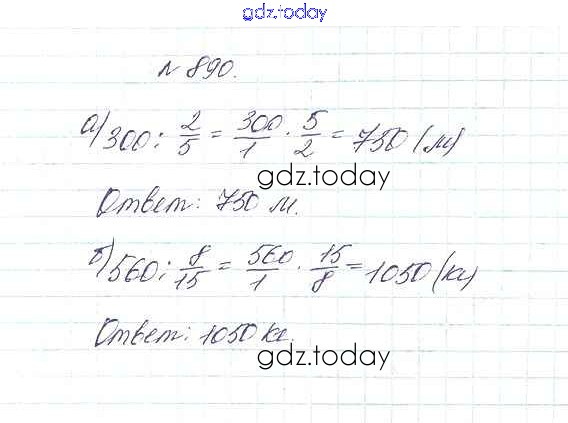 gdz.today
№ 890.
а) 300 : 2/5 = 300/1 · 5/2 = 750 (м)
gdz.today
Ответ: 750 м.
б) 560 : 8/15 = 560/1 · 15/8 = 1050 (кг)
Ответ: 1050 кг.
gdz.today